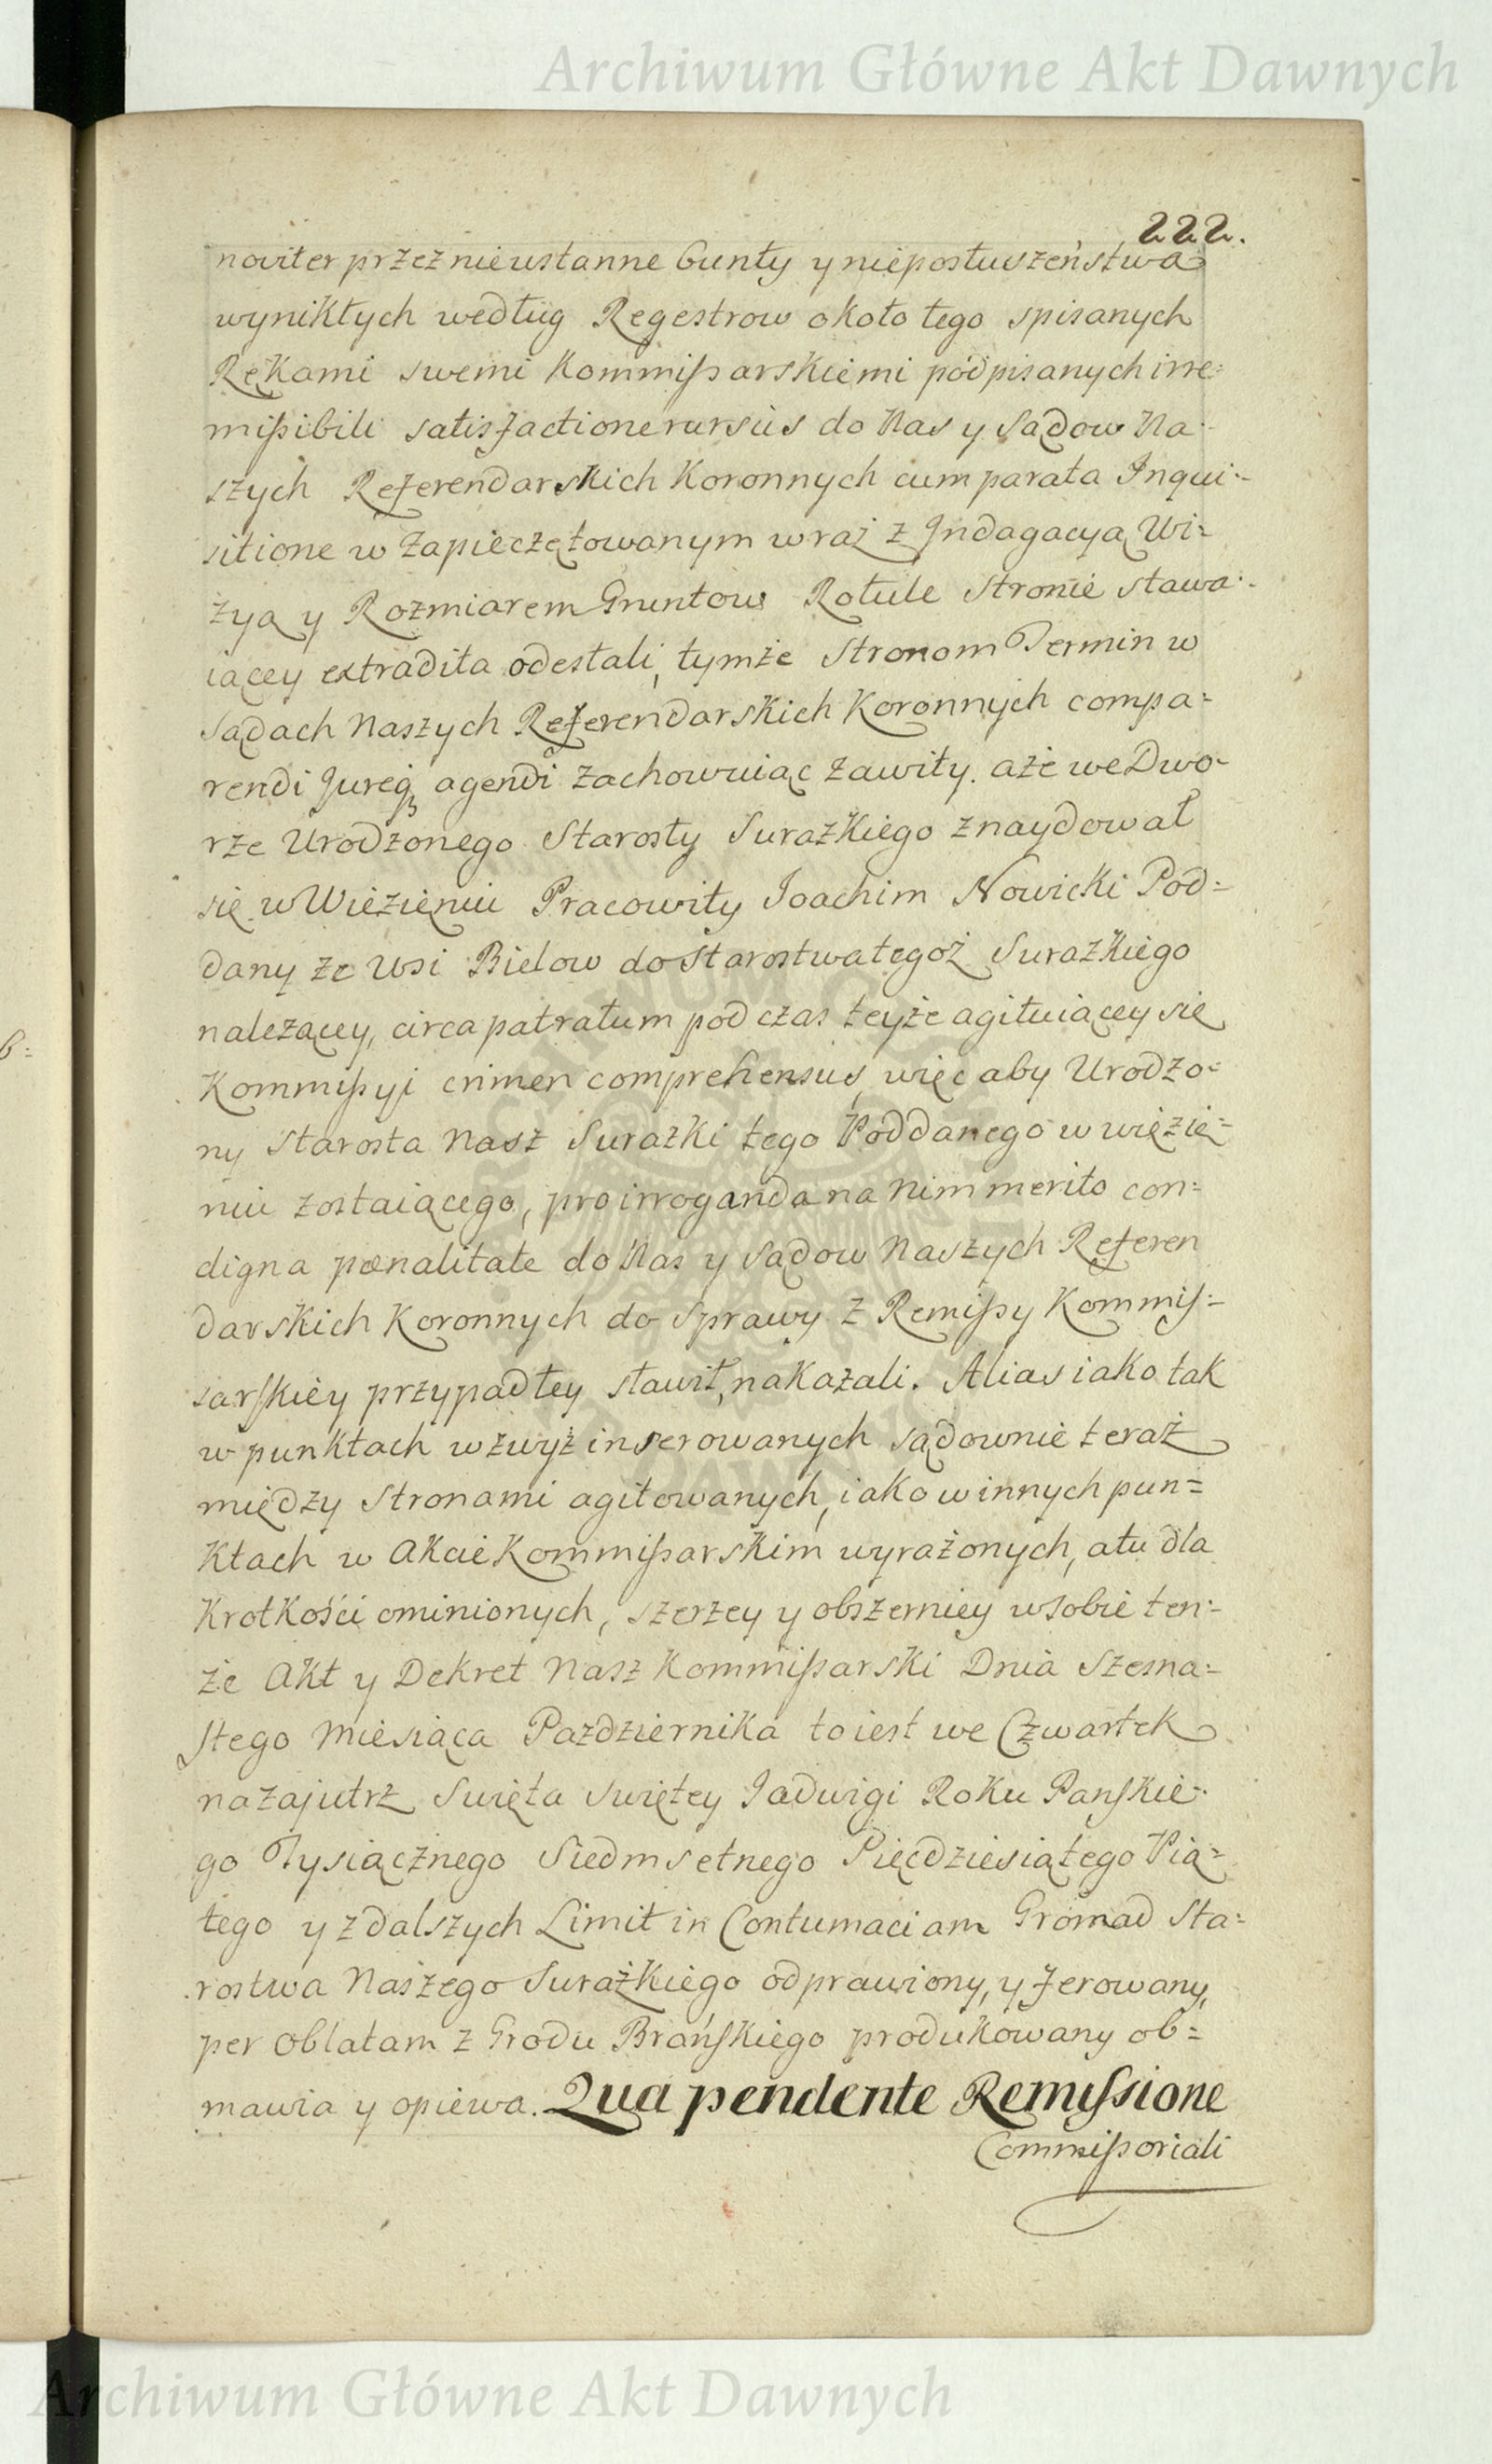 Archiwum Główne Akt Dawnych
222.
noviter przez nieustanne bunty y nieposłuszeństwa
wynikłych według Regestrow około tego spisanych
Rękami swemi Kommissarskiemi podpisanych irre=
missibili satisfactione rursus do Nas y Sądow Na=
szych Referendarskich Koronnych cum parata Inqui=
sitione w Zapieczętowanym wraz z Indagacyą Wi=
zyą y Rozmiarem Gruntow Rotule Stronie stawa=
iącey extradita odesłali, tymże Stronom Termin w
Sądach Naszych Referendarskich Koronnych compa=
rendi Jureq3 agendi Zachowuiąc Zawity. aże we Dwo=
rze Urodzonego Starosty Surazkiego znaydował
się w Więzieniu Pracowity Joachim Nowicki Pod=
dany ze Wsi Bielow do Starostwa tegoż Surazkiego
należącey, circa patratum podczas teyże agituiącey się
Kommissyi crimen comprehensus, więc aby Urodzo=
ny Starosta Nasz Surazki tego Poddanego w więzie=
niu zostaiącego, pro irroganda na Nim merito con=
digna pœnalitate do Nas y Sądow Naszych Referen
darskich Koronnych do Sprawy z Remissy Kommis=
sarskiey przypadłey stawił, nakazali. Alias iako tak
w punktach wzwyż inserowanych sądownie teraz
między Stronami agitowanych, iako w innych pun=
ktach w Akcie Kommissarskim wyrażonych, a tu dla
Krotkości ominionych, szerzey y obszerniey w sobie ten=
że Akt y Dekret Nasz Kommissarski Dnia Szesna=
stego Miesiąca Pazdziernika to iest we Czwartek
nazajutrz Swięta Swiętey Jadwigi Roku Panskie=
go Tysiącznego Siedmsetnego Pięcdziesiątego Pią=
tego y z dalszych Limit in Contumaciam Gromad Sta=
rostwa Naszego Surażkiego odprawiony, y ferowany,
per Oblatam z Grodu Brańskiego produkowany ob=
mawia y opiewa. Qua pendente Remissione
Commissoriali
b=
Archiwum Główne Akt Dawnych